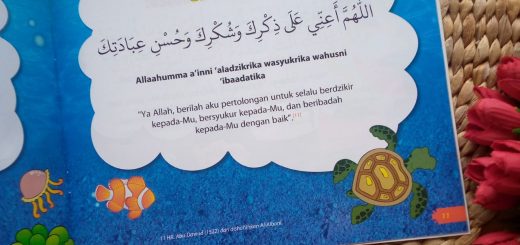 اللَّهُمَّ أَعِنِّي عَلَى ذِكْرِكَ وَشُكْرِكَ وَحُسْنِ عِبَادَتِكَ
Allaahumma a'inni 'aladzikrika wasyukrika wahusni
'ibaadatika
"Ya Allah, berilah aku pertolongan untuk selalu berdzikir
kepada-Mu, bersyukur kepada-Mu, dan beribadah
kepada-Mu dengan baik".
11 HR. Abu Dawud (1522) dan Al-Albani
11